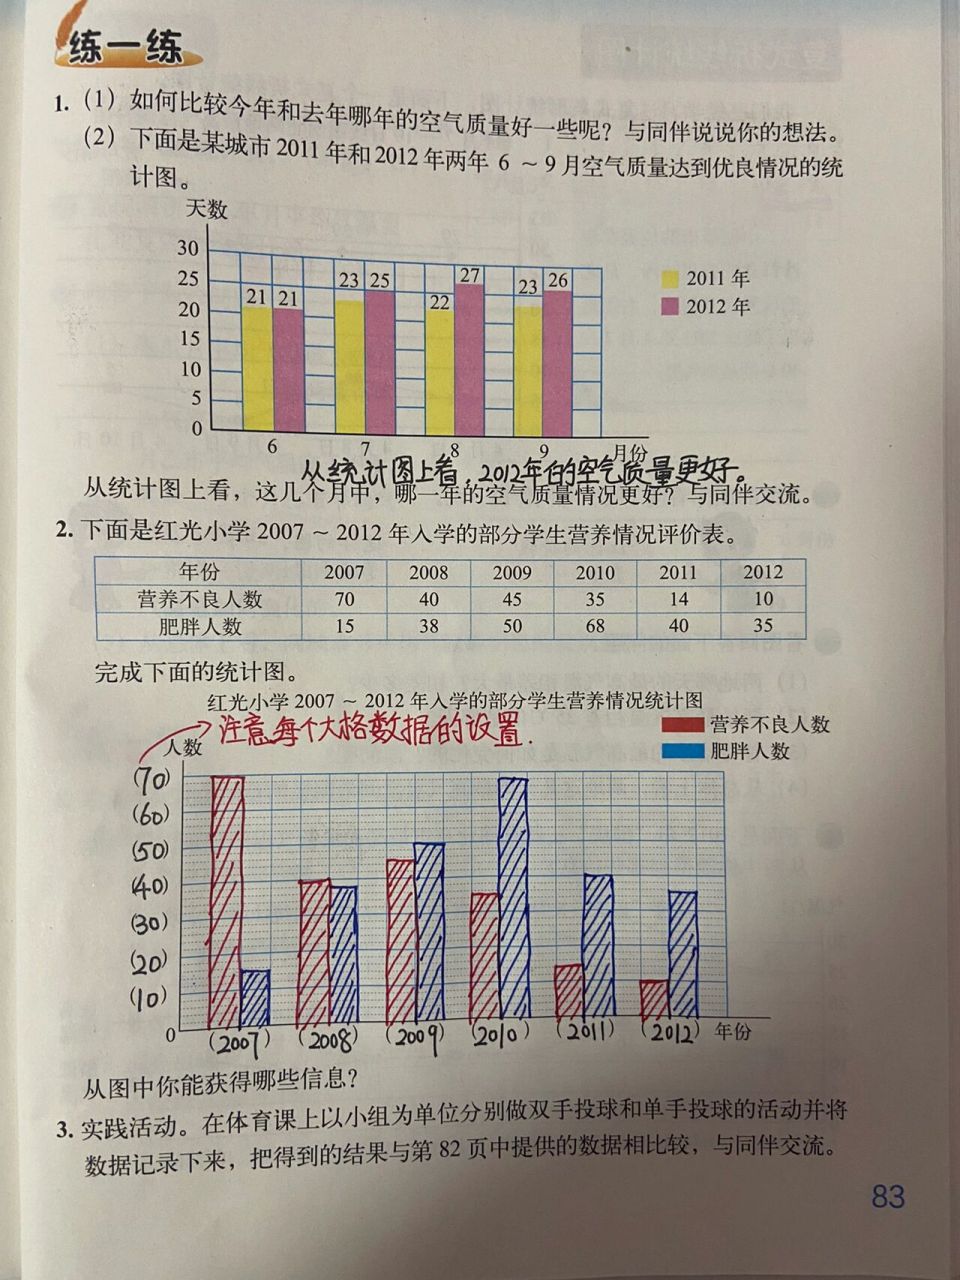 练一练
1.（1）如何比较今年和去年哪年的空气质量好一些呢？与同伴说说你的想法。
（2）下面是某城市 2011 年和 2012 年两年 6 ～ 9 月空气质量达到优良情况的统
计图。
天数
30
25
20
15
10
5
0
21 21 23 25 22 27 23 26
2011 年
2012 年
6 7 8 9 月份
从统计图上看，2012年的空气质量更好。
从统计图上看，这几个月中，哪一年的空气质量情况更好？与同伴交流。
2. 下面是红光小学 2007 ～ 2012 年入学的部分学生营养情况评价表。
年份 2007 2008 2009 2010 2011 2012
营养不良人数 70 40 45 35 14 10
肥胖人数 15 38 50 68 40 35
完成下面的统计图。
红光小学 2007 ～ 2012 年入学的部分学生营养情况统计图
注意每个大格数据的设置.
营养不良人数
肥胖人数
人数
(70)
(60)
(50)
(40)
(30)
(20)
(10)
0
(2007) (2008) (2009) (2010) (2011) (2012) 年份
从图中你能获得哪些信息？
3. 实践活动。在体育课上以小组为单位分别做双手投球和单手投球的活动并将
数据记录下来，把得到的结果与第 82 页中提供的数据相比较，与同伴交流。
83